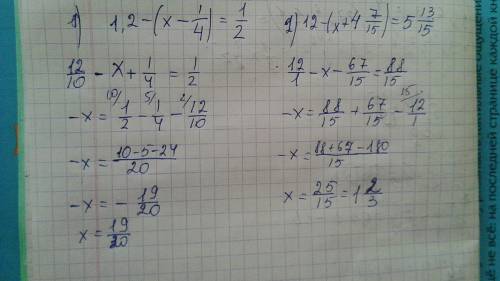 1) 1,2-(x-1/4)=1/2
12/10-x+1/4=1/2
-x=10/ 1/2-5/ 1/4-2/ 12/10
-x=(10-5-24)/20
-x=-19/20
x=19/20
2) 12-(x+4 7/15)=5 13/15
12/1-x-67/15=88/15
-x=88/15+67/15-15/ 12/1
-x=(88+67-180)/15
x=25/15=1 2/3
на последней странице каждой